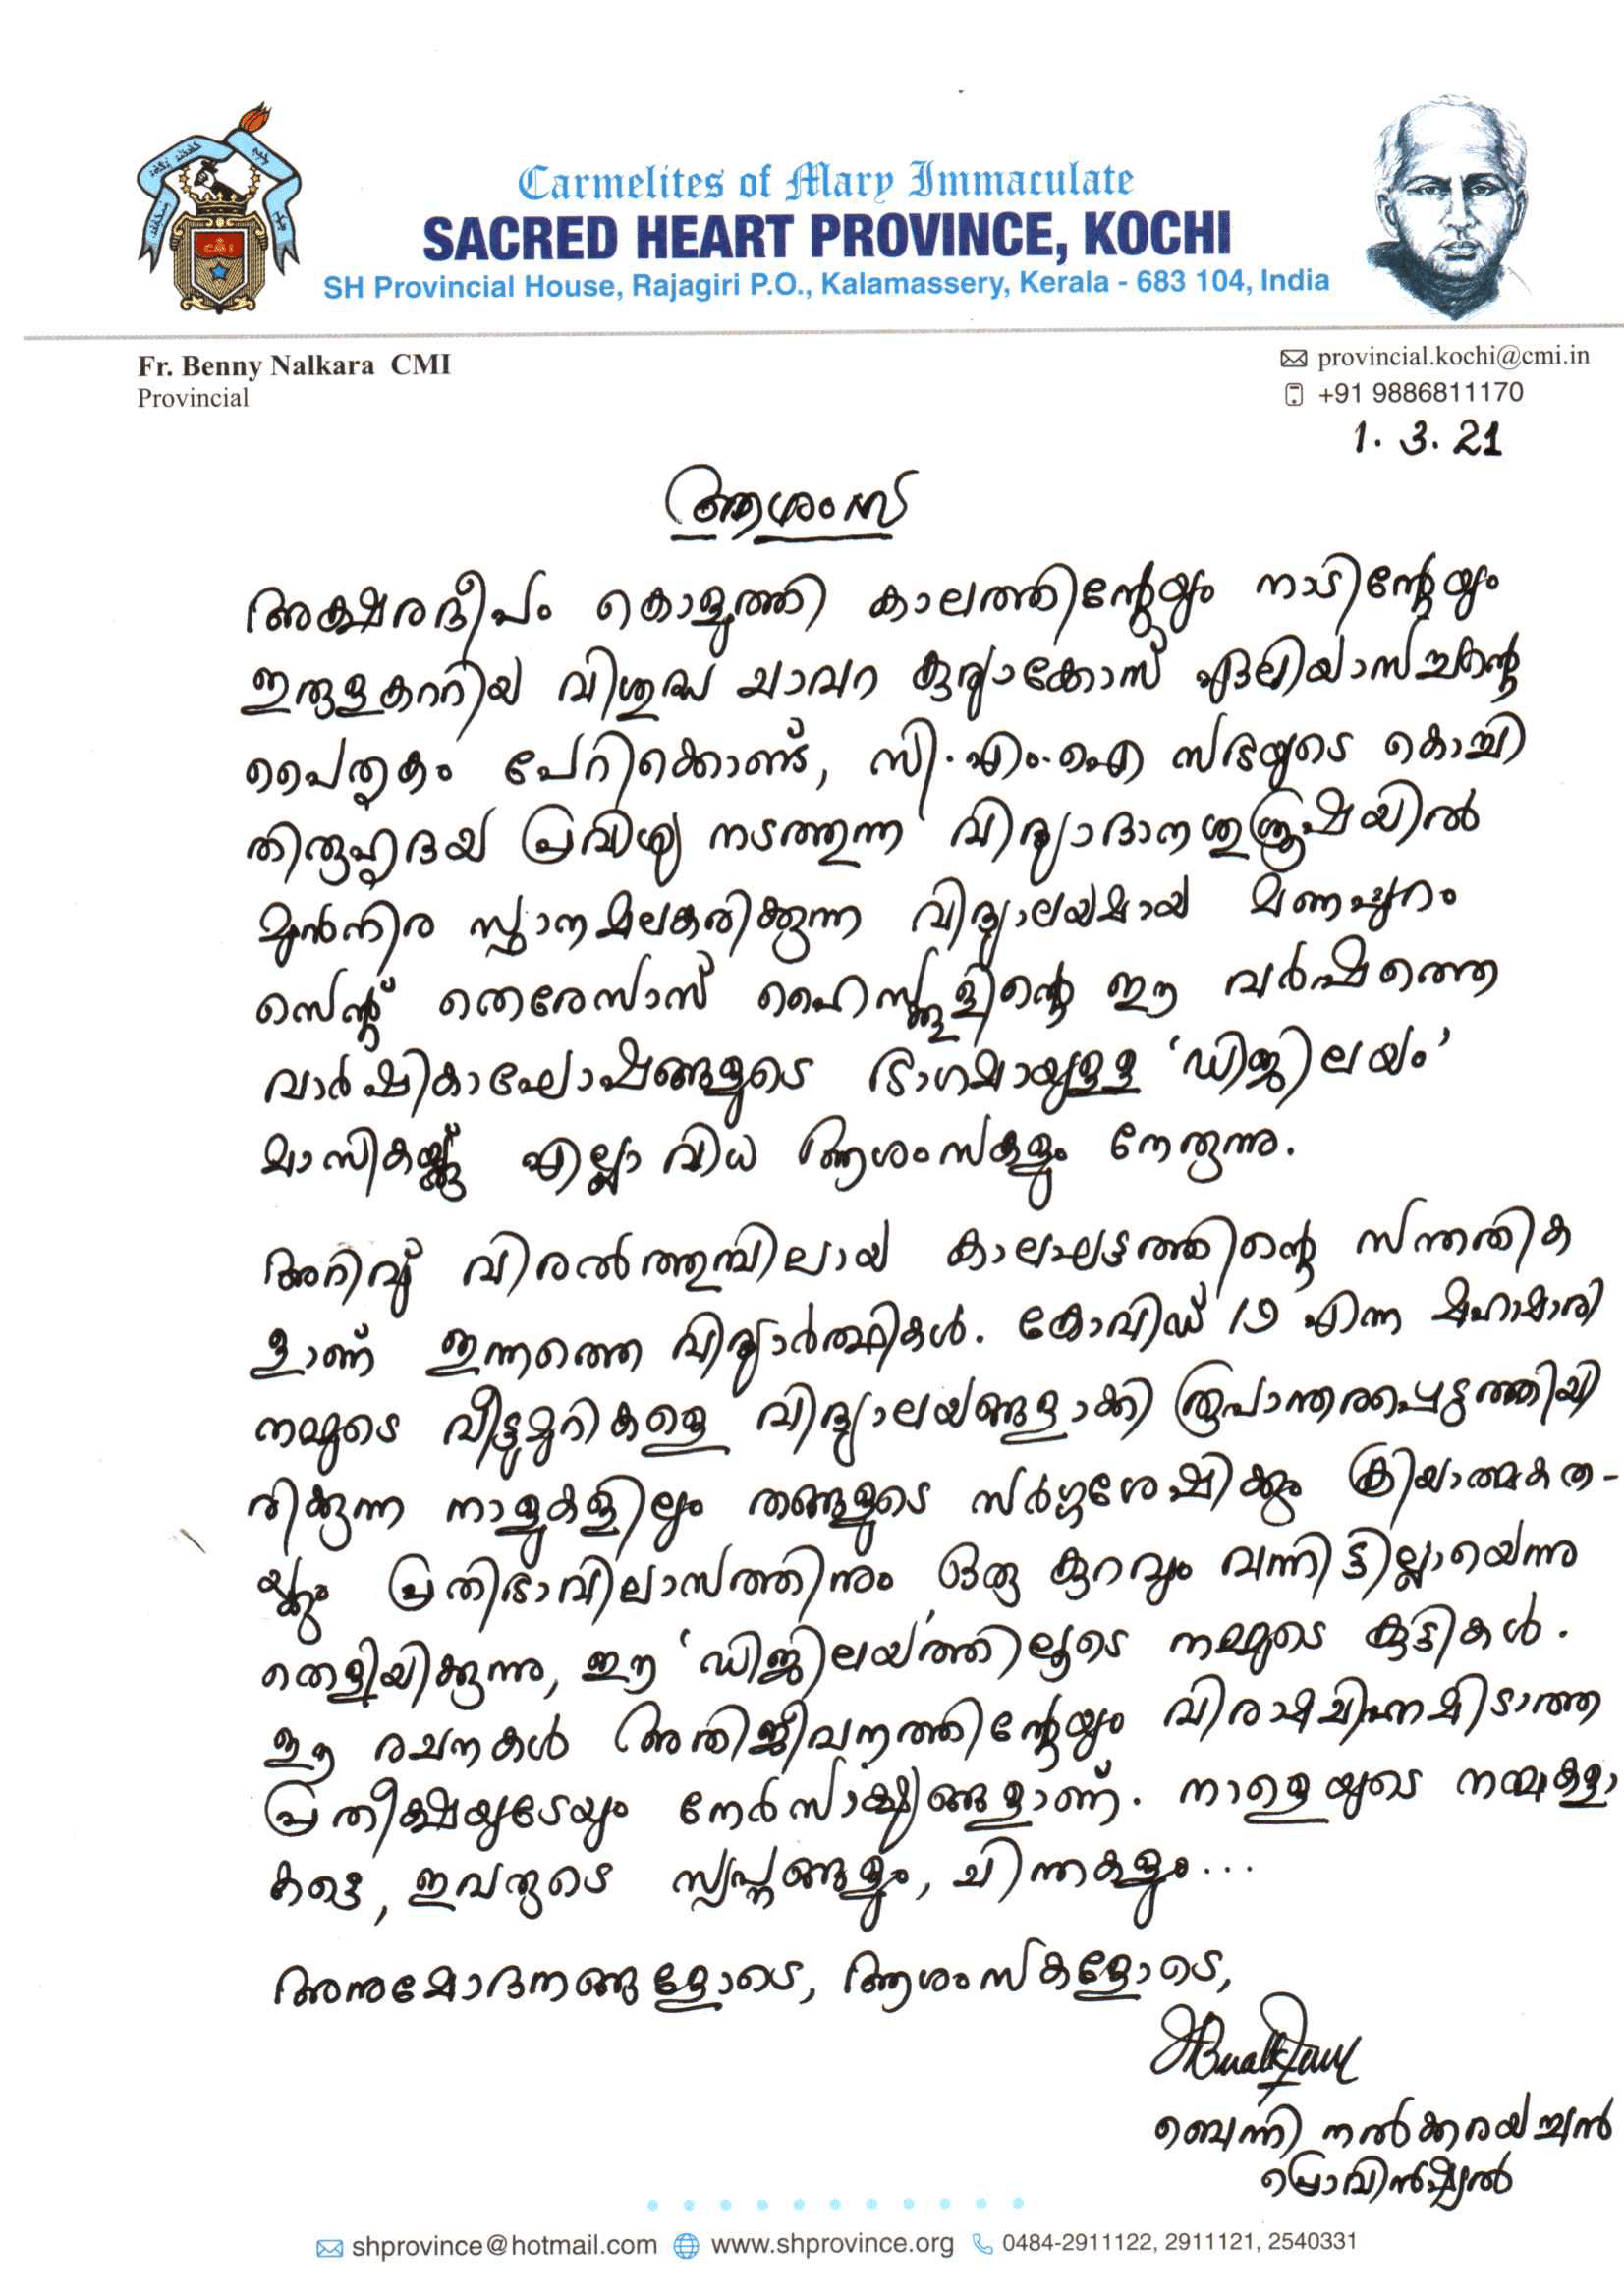 Carmelites of Mary Immaculate
SACRED HEART PROVINCE, KOCHI
SH Provincial House, Rajagiri P.O., Kalamassery, Kerala - 683 104, India
Fr. Benny Nalkara CMI
Provincial
provincial.kochi@cmi.in
+91 9886811170
1. 3. 21
ആശംസ
അക്ഷരദീപം കൊളുത്തി കാലത്തിന്റേയും നാടിന്റേയും
ഇരുളകററിയ വിശുദ്ധ ചാവറ കുര്യാക്കോസ് ഏലിയാസച്ചന്റെ
പൈതൃകം പേറിക്കൊണ്ട്, സി.എം.ഐ സഭയുടെ കൊച്ചി
തിരുഹൃദയ പ്രവിശ്യ നടത്തുന്ന വിദ്യാദാനശുശ്രൂഷയിൽ
മുൻനിര സ്ഥാനമലങ്കരിക്കുന്ന വിദ്യാലയമായ മണപ്പുറം
സെന്റ് തെരേസാസ് ഹൈസ്ക്കൂളിന്റെ ഈ വർഷത്തെ
വാർഷികാഘോഷങ്ങളുടെ ഭാഗമായുള്ള 'ഡിജിലയം'
മാസികയ്ക്ക് എല്ലാ വിധ ആശംസകളും നേരുന്നു.
അറിവ് വിരൽത്തുമ്പിലായ കാലഘട്ടത്തിന്റെ സന്തതിക
ളാണ് ഇന്നത്തെ വിദ്യാർത്ഥികൾ. കോവിഡ് 19 എന്ന മഹാമാരി
നമ്മുടെ വീട്ടുമുറികളെ വിദ്യാലയങ്ങളാക്കി രൂപാന്തരപ്പെടുത്തിയി
രിക്കുന്ന നാളുകളിലും തങ്ങളുടെ സർഗ്ഗശേഷിക്കും ക്രിയാത്മകത-
യ്ക്കും പ്രതിഭാവിലാസത്തിനും ഒരു കുറവും വന്നിട്ടില്ലായെന്നു
തെളിയിക്കുന്നു, ഈ 'ഡിജിലയ'ത്തിലൂടെ നമ്മുടെ കുട്ടികൾ.
ഈ രചനകൾ അതിജീവനത്തിന്റേയും വിരാമചിഹ്നമിടാത്ത
പ്രതീക്ഷയുടേയും നേർസാക്ഷ്യങ്ങളാണ്. നാളെയുടെ നന്മകളാ
കട്ടെ, ഇവരുടെ സ്വപ്നങ്ങളും, ചിന്തകളും...
അനുമോദനങ്ങളോടെ, ആശംസകളോടെ,
ബെന്നി നൽക്കരയച്ചൻ
പ്രൊവിൻഷ്യൽ
shprovince@hotmail.com www.shprovince.org 0484-2911122, 2911121, 2540331